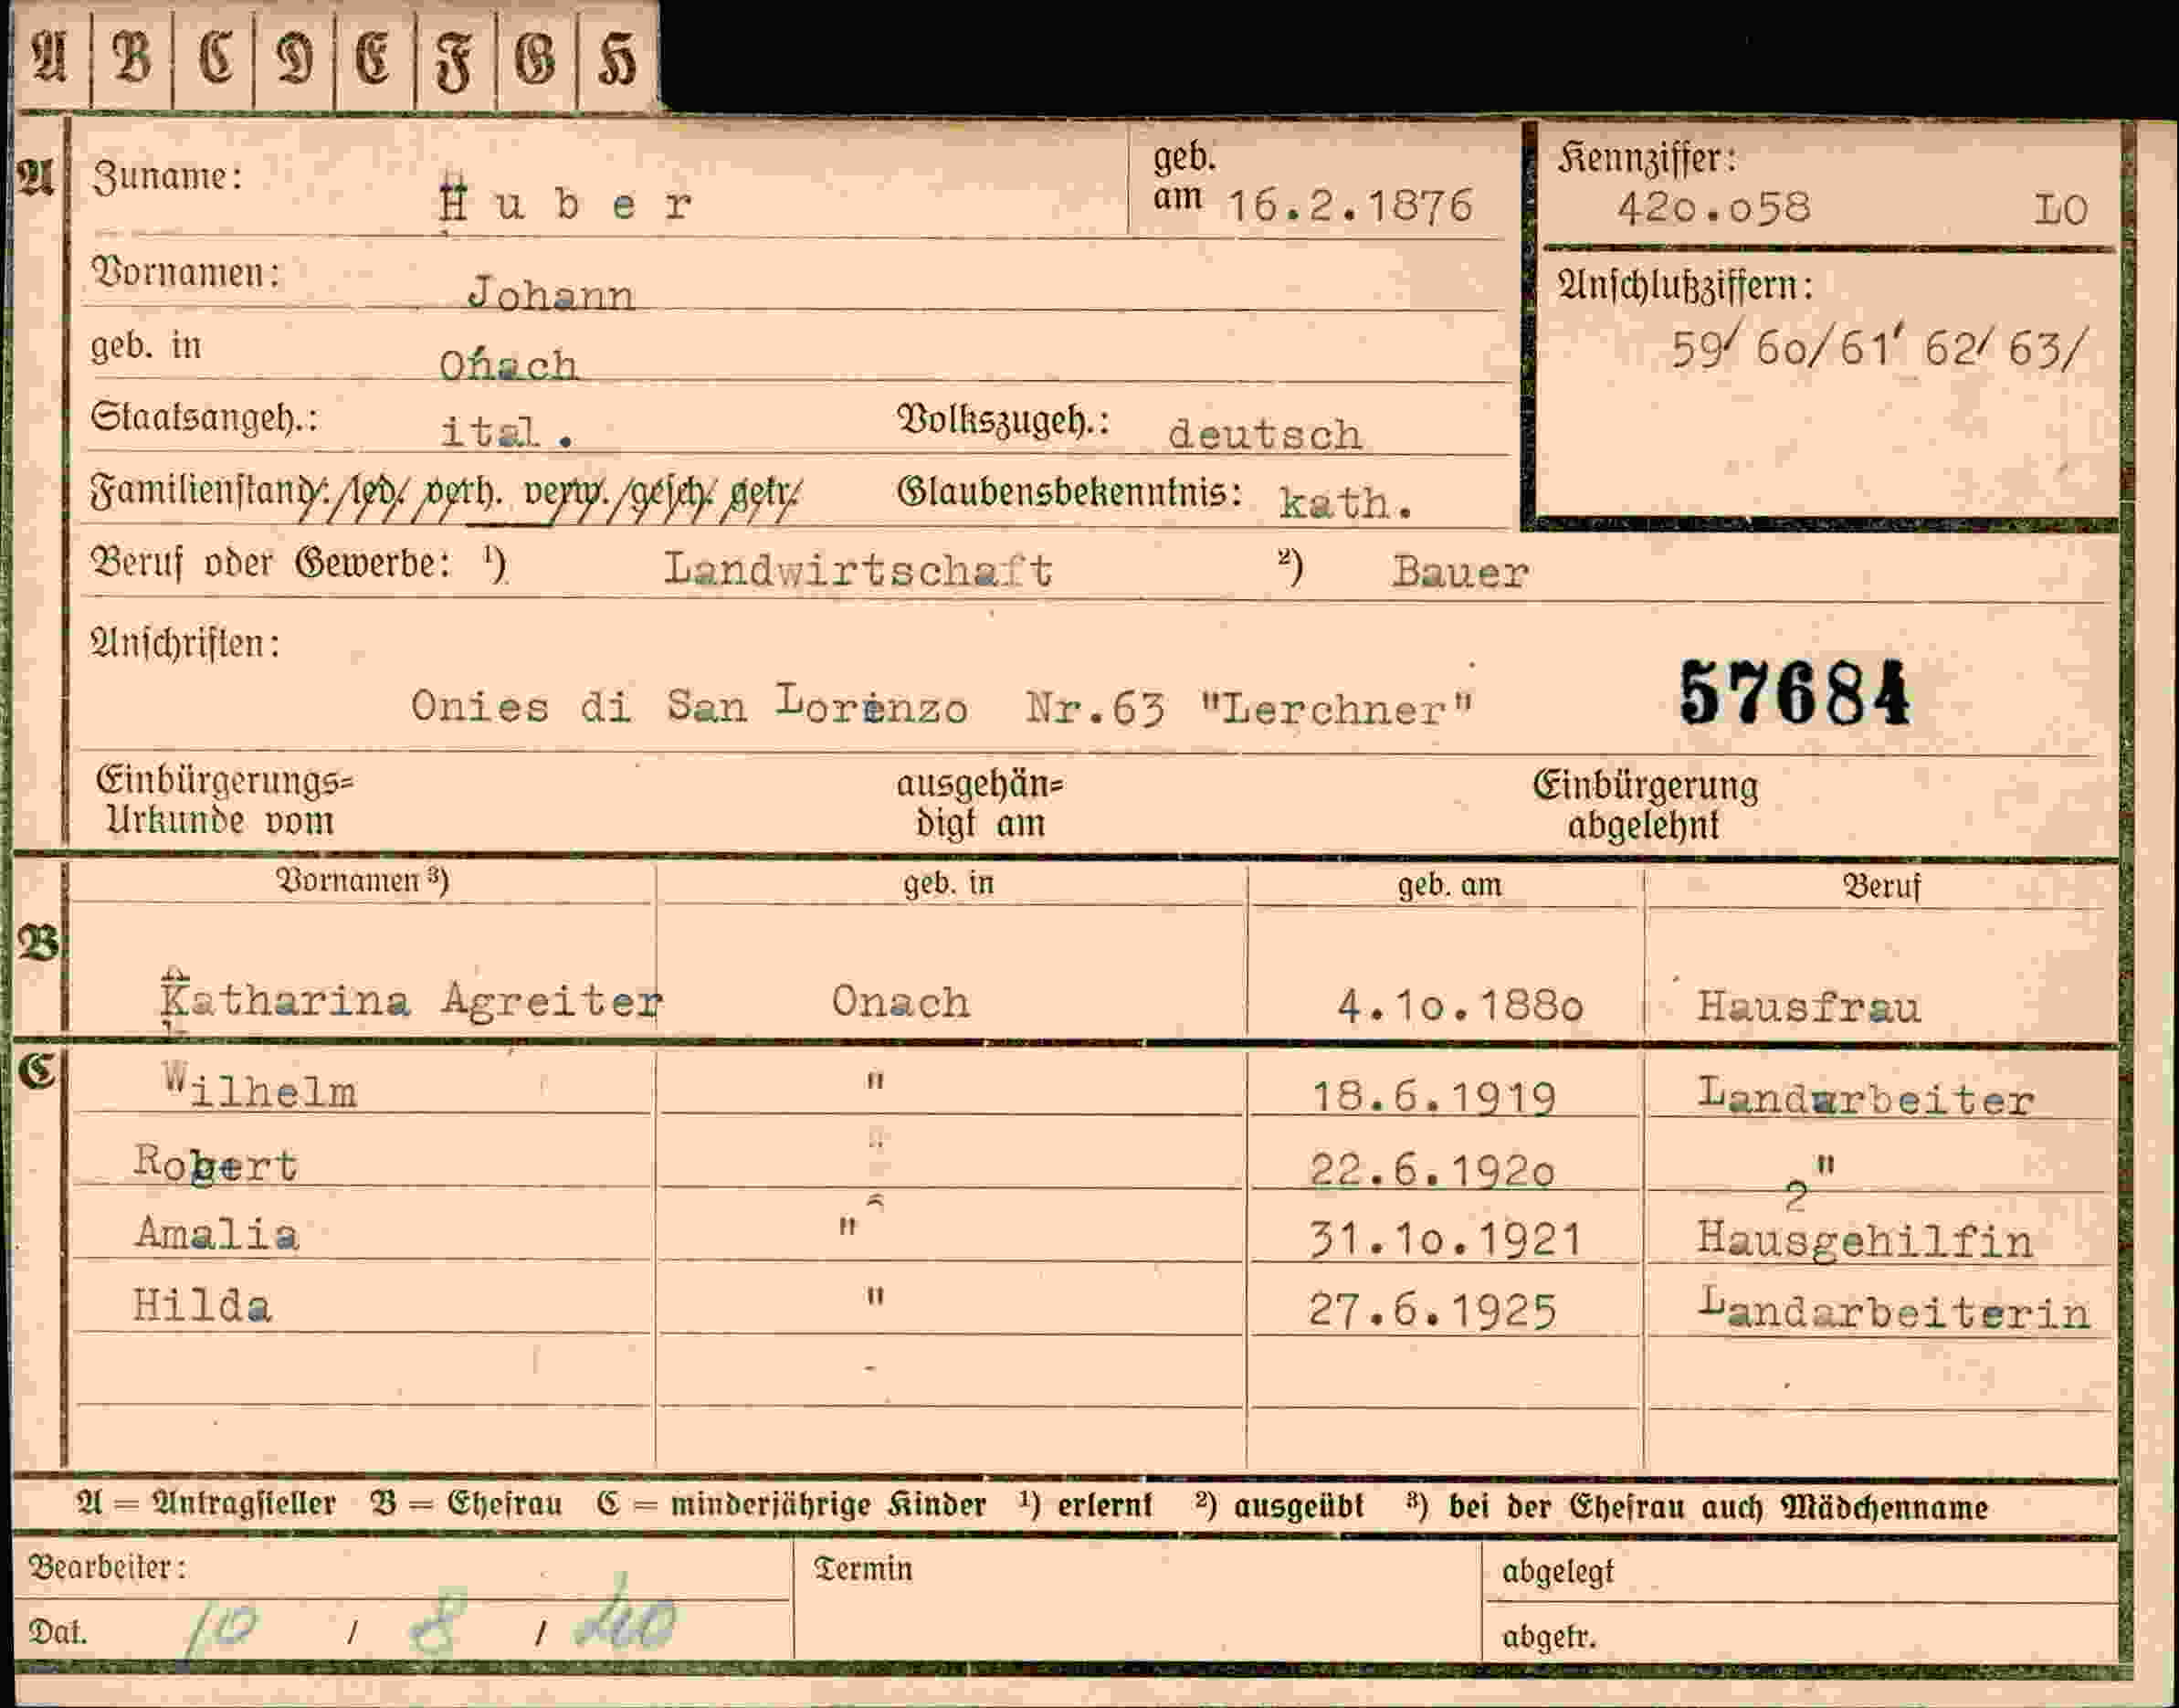 A B C D E F G H
A Zuname: Huber geb. am 16.2.1876 Kennziffer: 420.058 LO
Vornamen: Johann Anschlußziffern:
geb. in Onach 59/ 60/61' 62/ 63/
Staatsangeh.: ital. Volkszugeh.: deutsch
Familienstand: led. verh. verw. gesch. getr. Glaubensbekenntnis: kath.
Beruf oder Gewerbe: ¹) Landwirtschaft ²) Bauer
Anschriften:
Onies di San Lorenzo Nr.63 "Lerchner" 57684
Einbürgerungs= ausgehän= Einbürgerung
Urkunde vom digt am abgelehnt
Vornamen ³) geb. in geb. am Beruf
B Katharina Agreiter Onach 4.10.1880 Hausfrau
C Wilhelm " 18.6.1919 Landarbeiter
Robert " 22.6.1920 "
Amalia " 31.10.1921 Hausgehilfin
Hilda " 27.6.1925 Landarbeiterin
A = Antragsteller B = Ehefrau C = minderjährige Kinder ¹) erlernt ²) ausgeübt ³) bei der Ehefrau auch Mädchenname
Bearbeiter: Termin abgelegt
Dat. 10 / 8 / 40 abgetr.